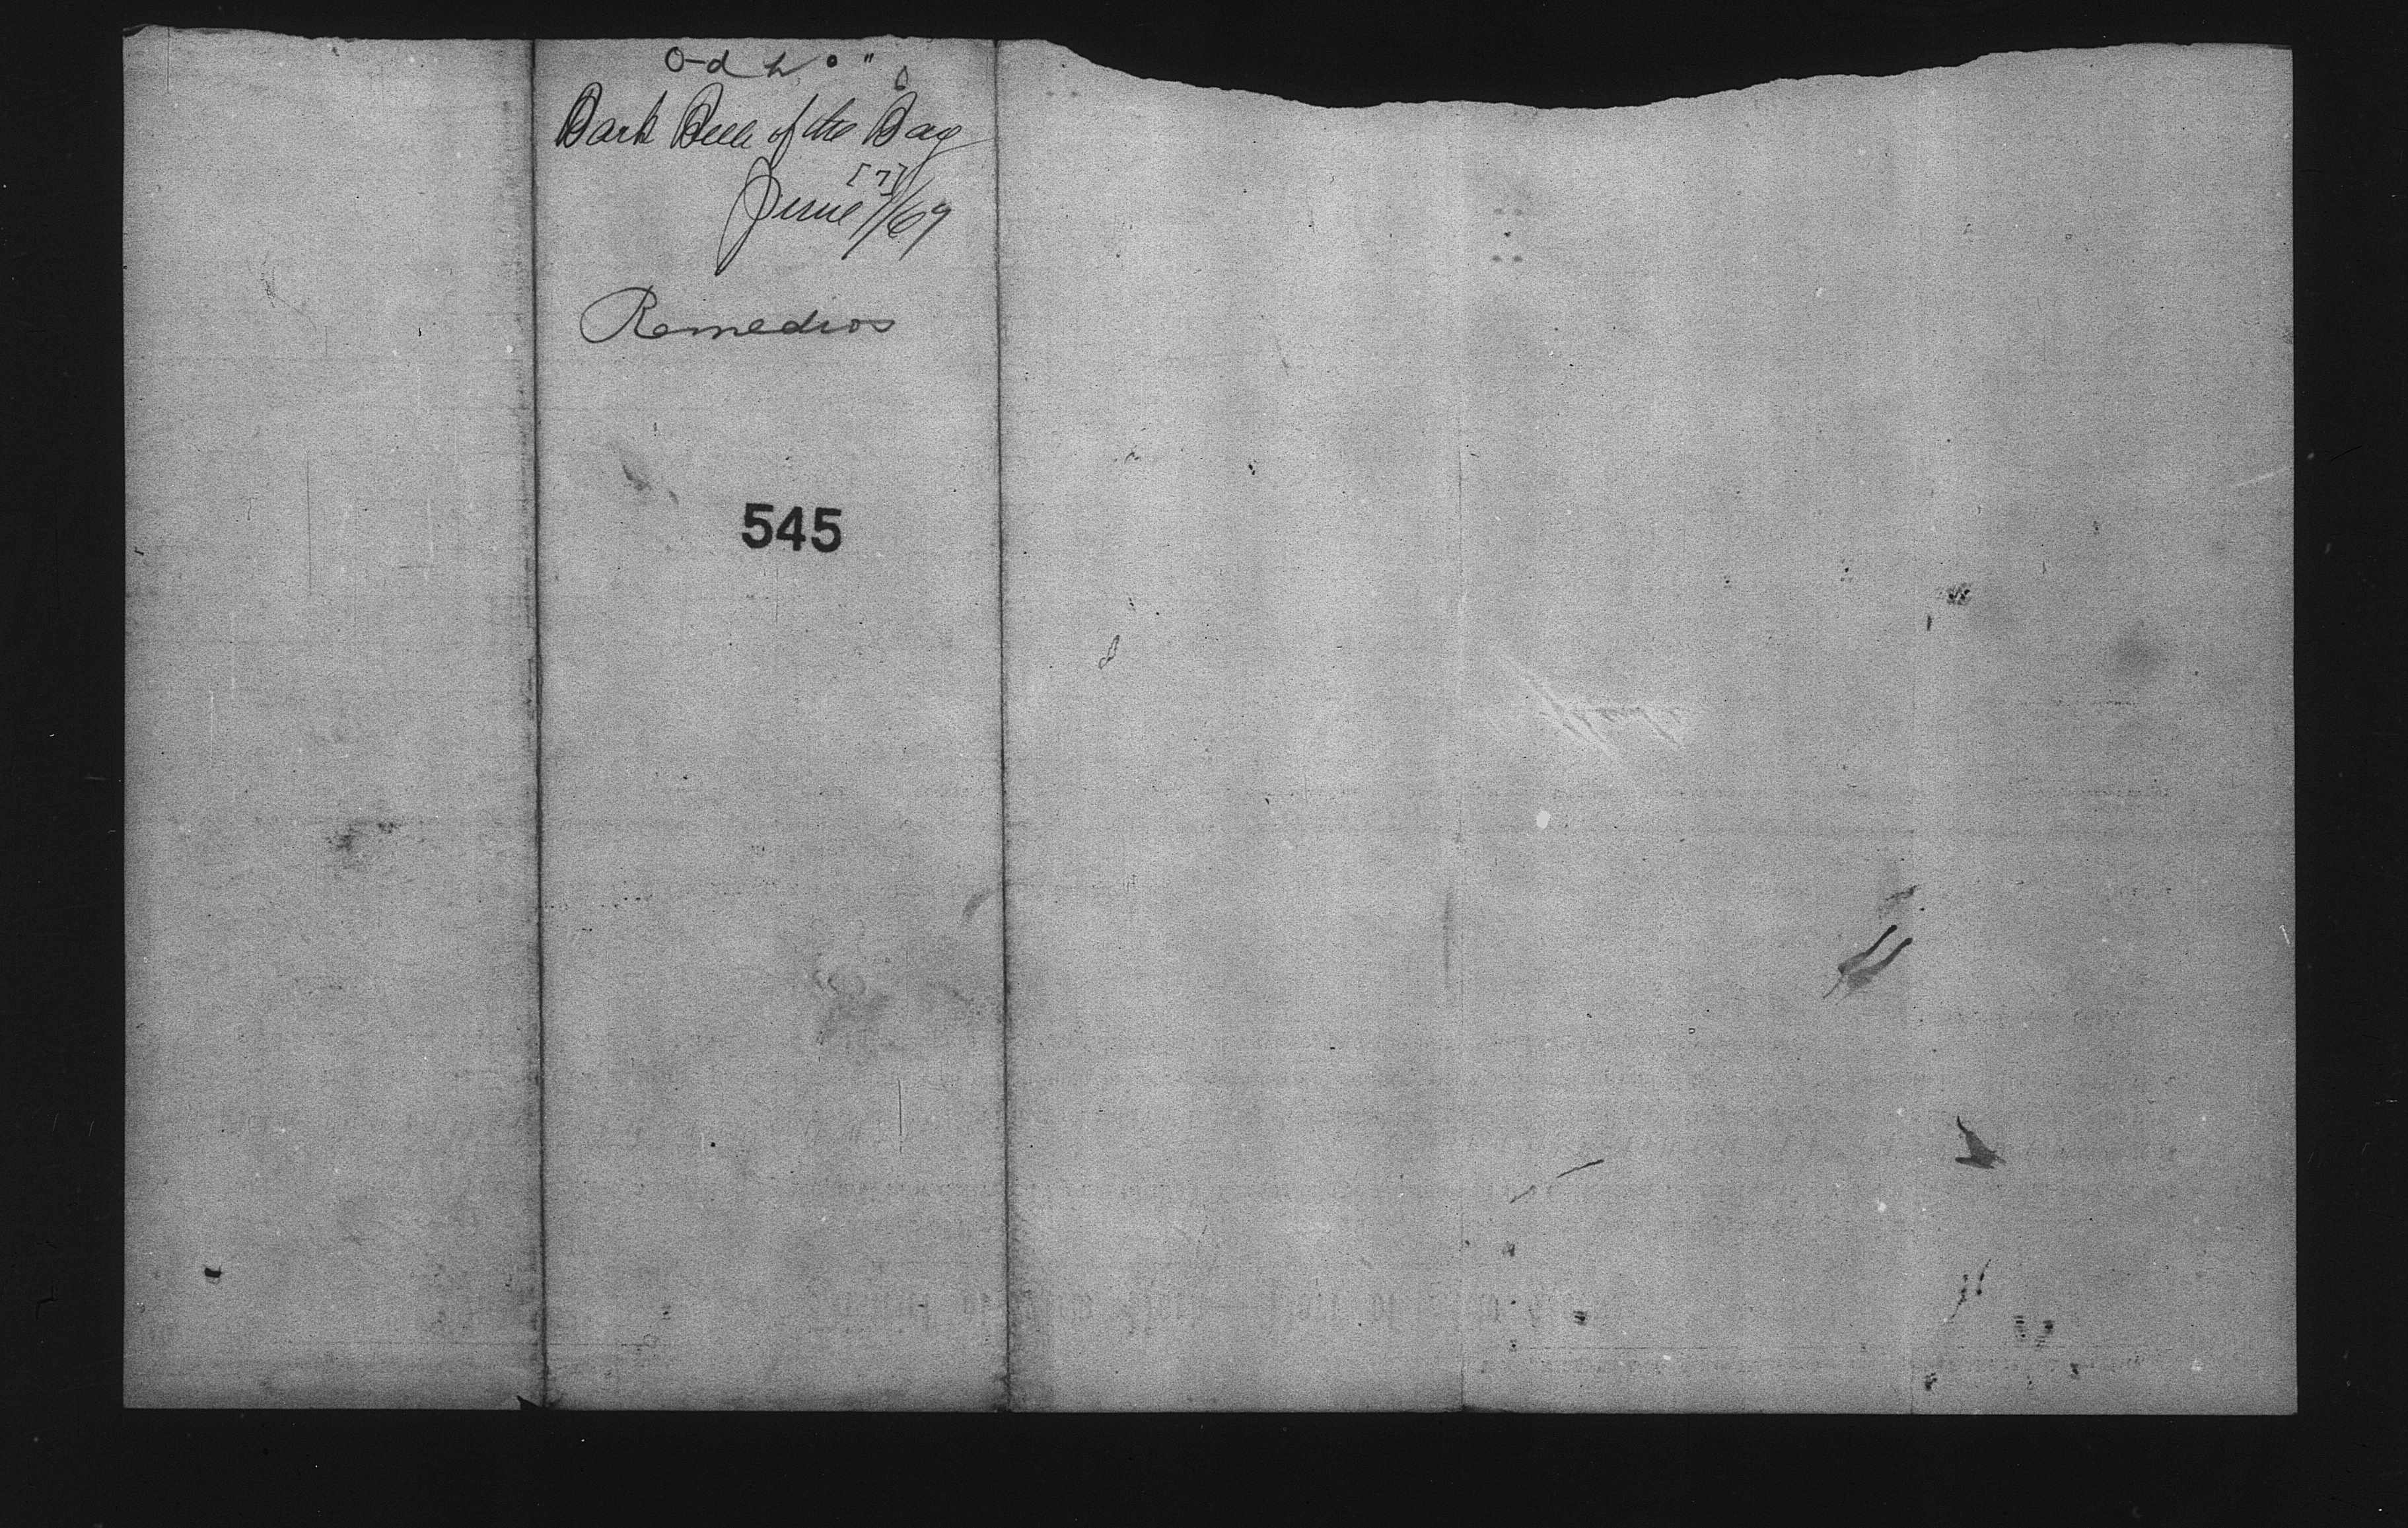 Bark Bell of the Bay
June 7/69
[7]
Remedios
545